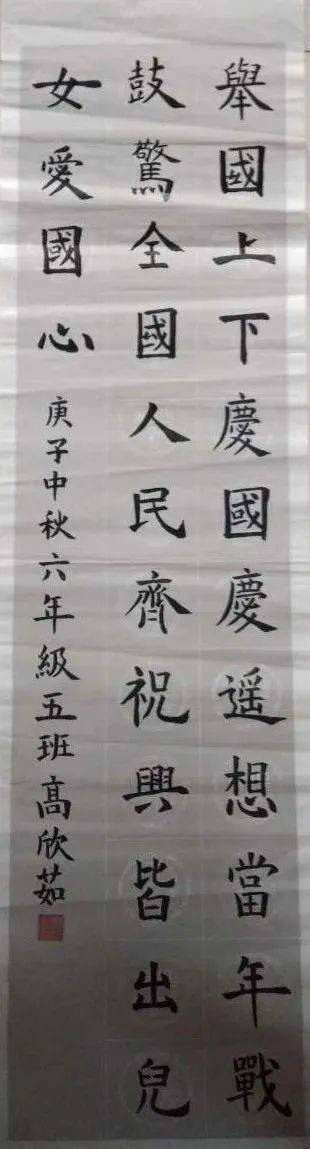 舉國上下慶國慶遥想當年戰
鼓驚全國人民齊祝興皆出兒
女愛國心
庚子中秋六年級五班高欣茹